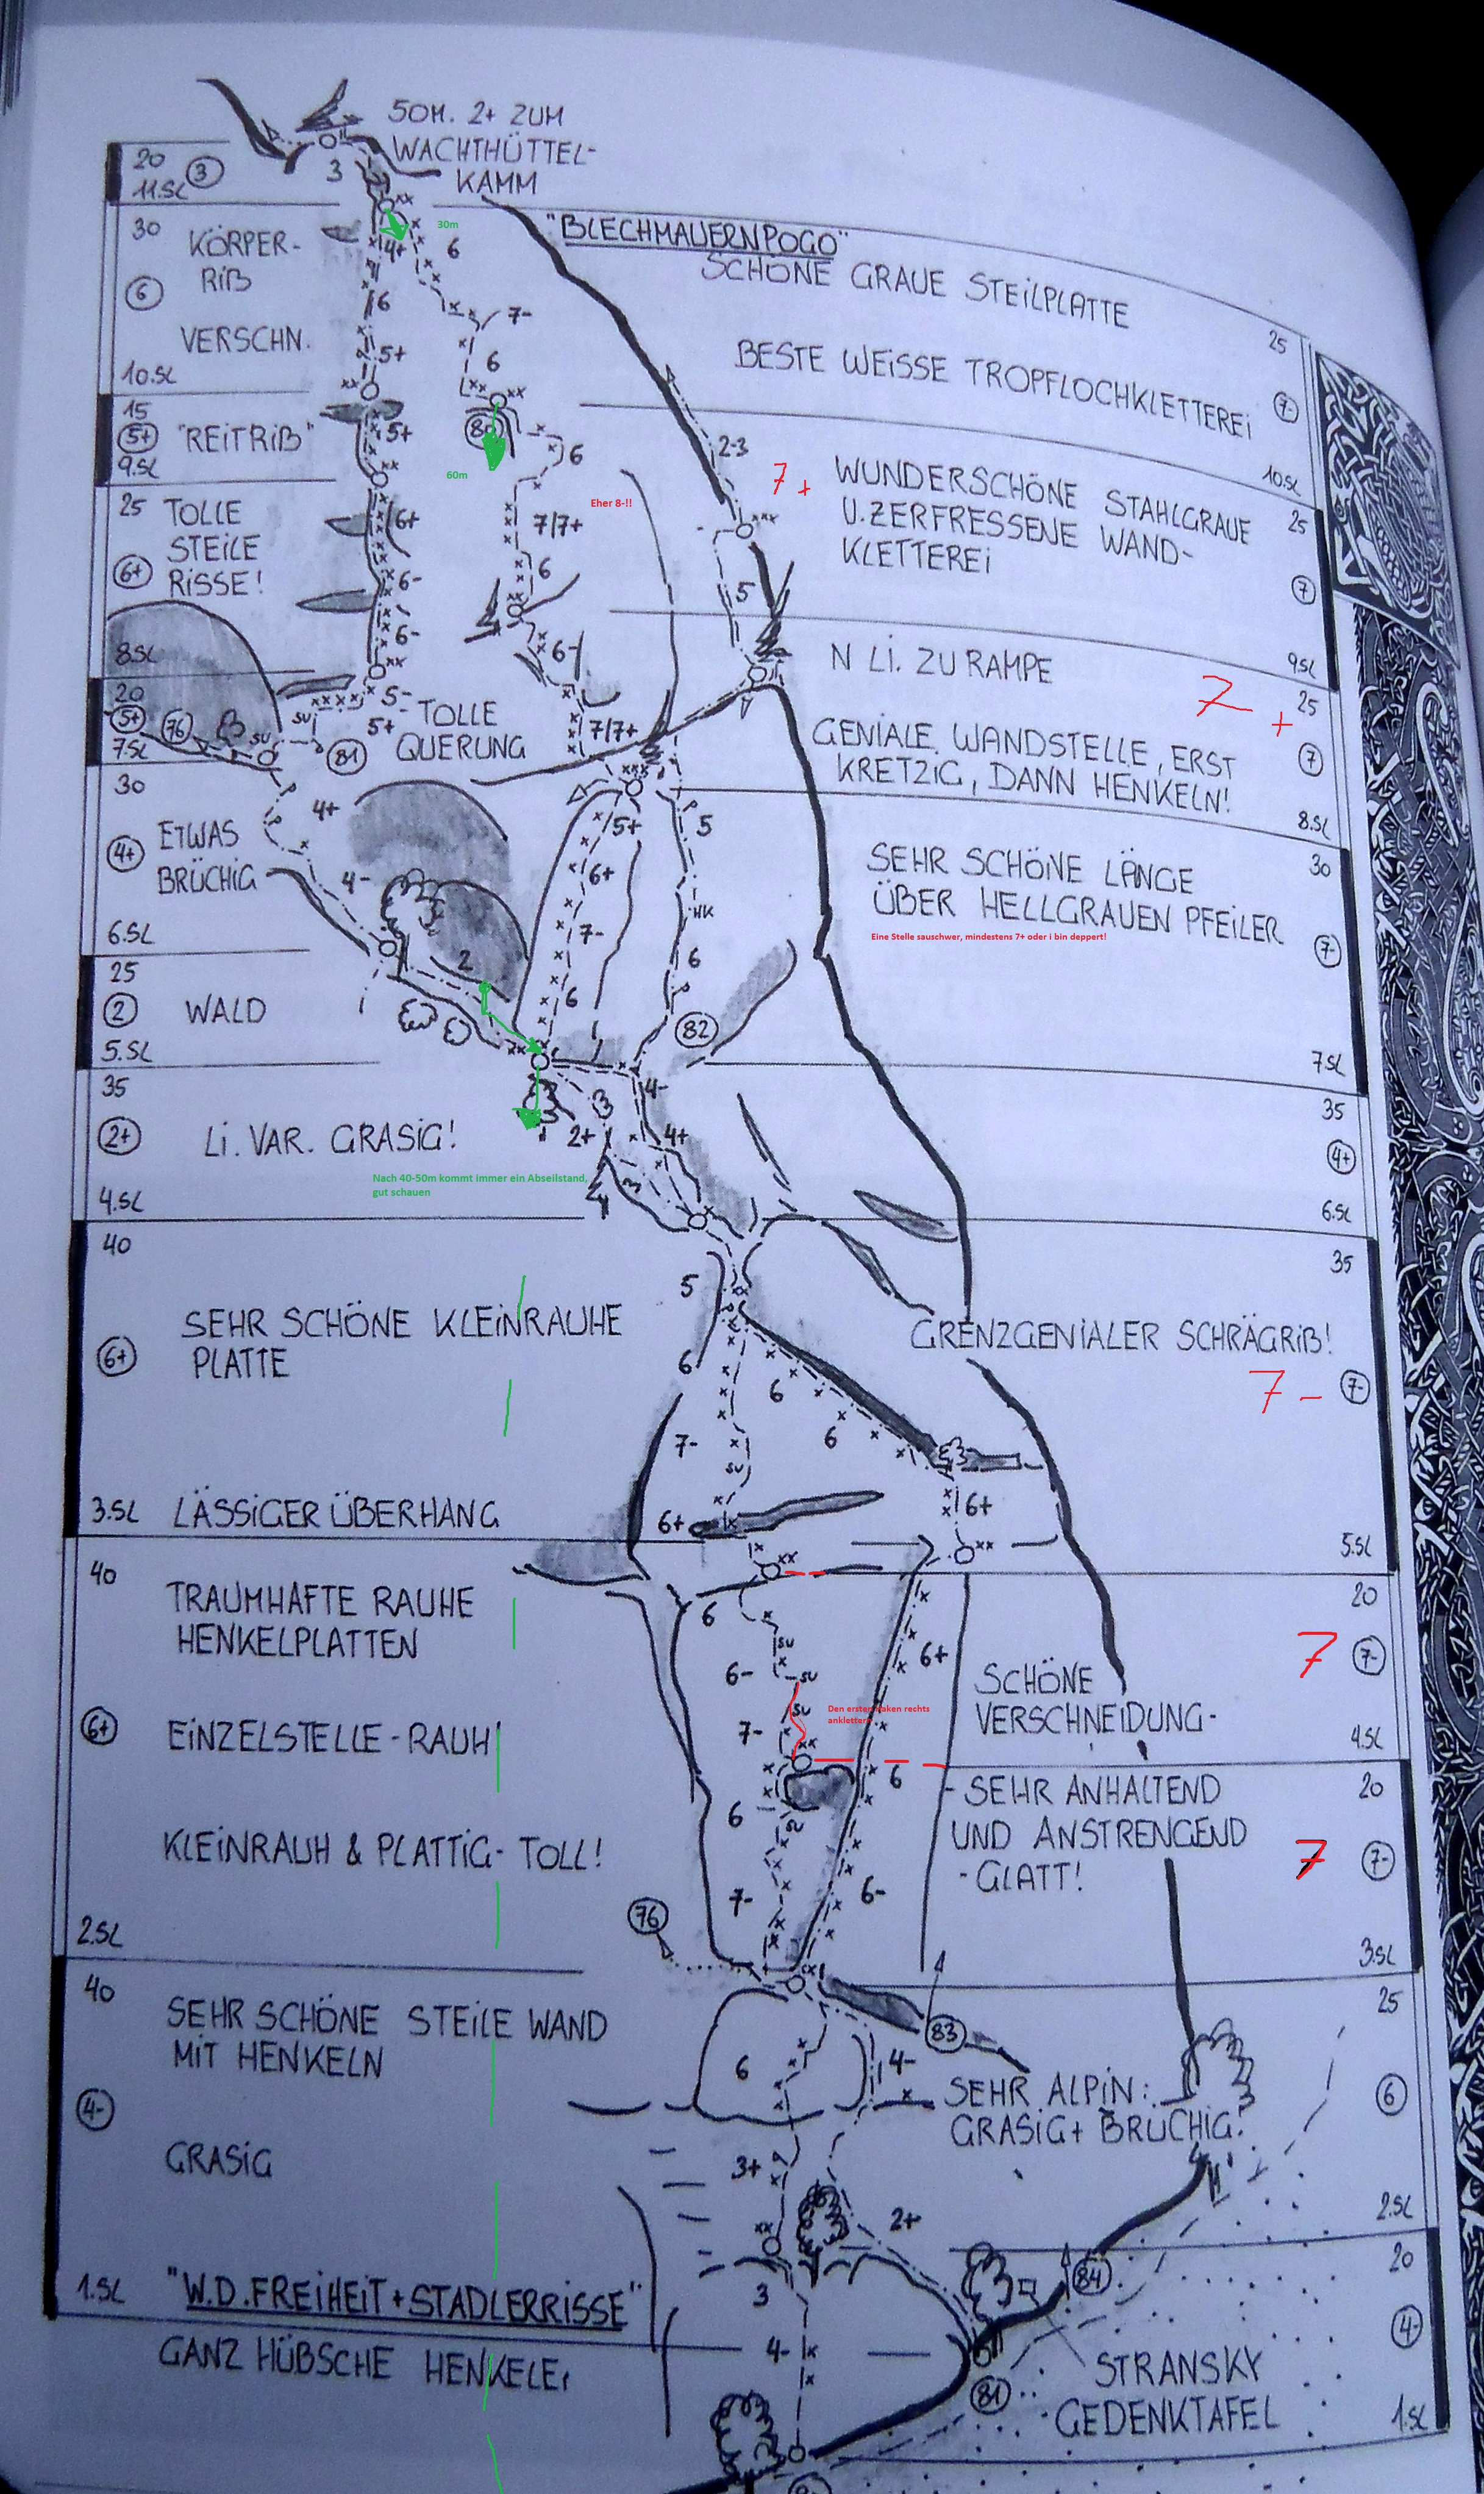 50M. 2+ ZUM
WACHTHÜTTEL-
KAMM
20
11.SL
3
3
30
KÖRPER-
RIß
6
VERSCHN.
10.SL
xx
4+
6
5+
xx
30m
6
7-
6
xx
xx
"BLECHMAUERNPOGO"
SCHÖNE GRAUE STEILPLATTE
BESTE WEISSE TROPFLOCHKLETTEREI
25
7-
10.SL
15
5+
9.SL
"REITRIß"
5+
xx
80
60m
6
Eher 8-!!
7/7+
6
xx
2-3
xxx
5
7+
WUNDERSCHÖNE STAHLGRAUE
U. ZERFRESSENE WAND-
KLETTEREI
25
7
9.SL
25
6+
8.SL
TOLLE
STEILE
RISSE!
6+
6-
6-
xx
6-
7/7+
N LI. ZU RAMPE
GENIALE WANDSTELLE, ERST
KRETZIG, DANN HENKELN!
7+
25
7
8.SL
20
5+
7.SL
76
SU
SU
5-
5+
81
TOLLE
QUERUNG
30
4+
6.SL
ETWAS
BRÜCHIG
4+
4-
xxx
5+
6+
7-
6
5
HK
6
82
SEHR SCHÖNE LÄNGE
ÜBER HELLGRAUEN PFEILER
Eine Stelle sauschwer, mindestens 7+ oder i bin deppert!
30
7-
7.SL
25
2
5.SL
WALD
2
xx
35
2+
4.SL
LI. VAR. GRASIG!
3
2+
3
4-
4+
Nach 40-50m kommt immer ein Abseilstand,
gut schauen
35
4+
6.SL
40
6+
3.SL
SEHR SCHÖNE KLEINRAUHE
PLATTE
LÄSSIGER ÜBERHANG
5
6
7-
SU
6+
xx
6
6
6+
xx
GRENZGENIALER SCHRÄGRIß!
35
7-
7-
5.SL
40
6+
2.SL
TRAUMHAFTE RAUHE
HENKELPLATTEN
EINZELSTELLE - RAUH!
KLEINRAUH & PLATTIG - TOLL!
6
SU
6-
SU
SU
7-
xx
6
7-
6+
6
6-
Den ersten Haken rechts
SCHÖNE
VERSCHNEIDUNG-
20
7
7-
4.SL
- SEHR ANHALTEND
UND ANSTRENGEND
- GLATT!
20
7
7-
3.SL
76
40
4-
1.SL
SEHR SCHÖNE STEILE WAND
MIT HENKELN
GRASIG
6
4-
3+
xx
2+
83
SEHR ALPIN:
GRASIG + BRÜCHIG!
25
6
2.SL
"W.D. FREIHEIT + STADLERRISSE"
GANZ HÜBSCHE HENKELEI
3
4-
84
81
STRANSKY
GEDENKTAFEL
20
4-
1.SL